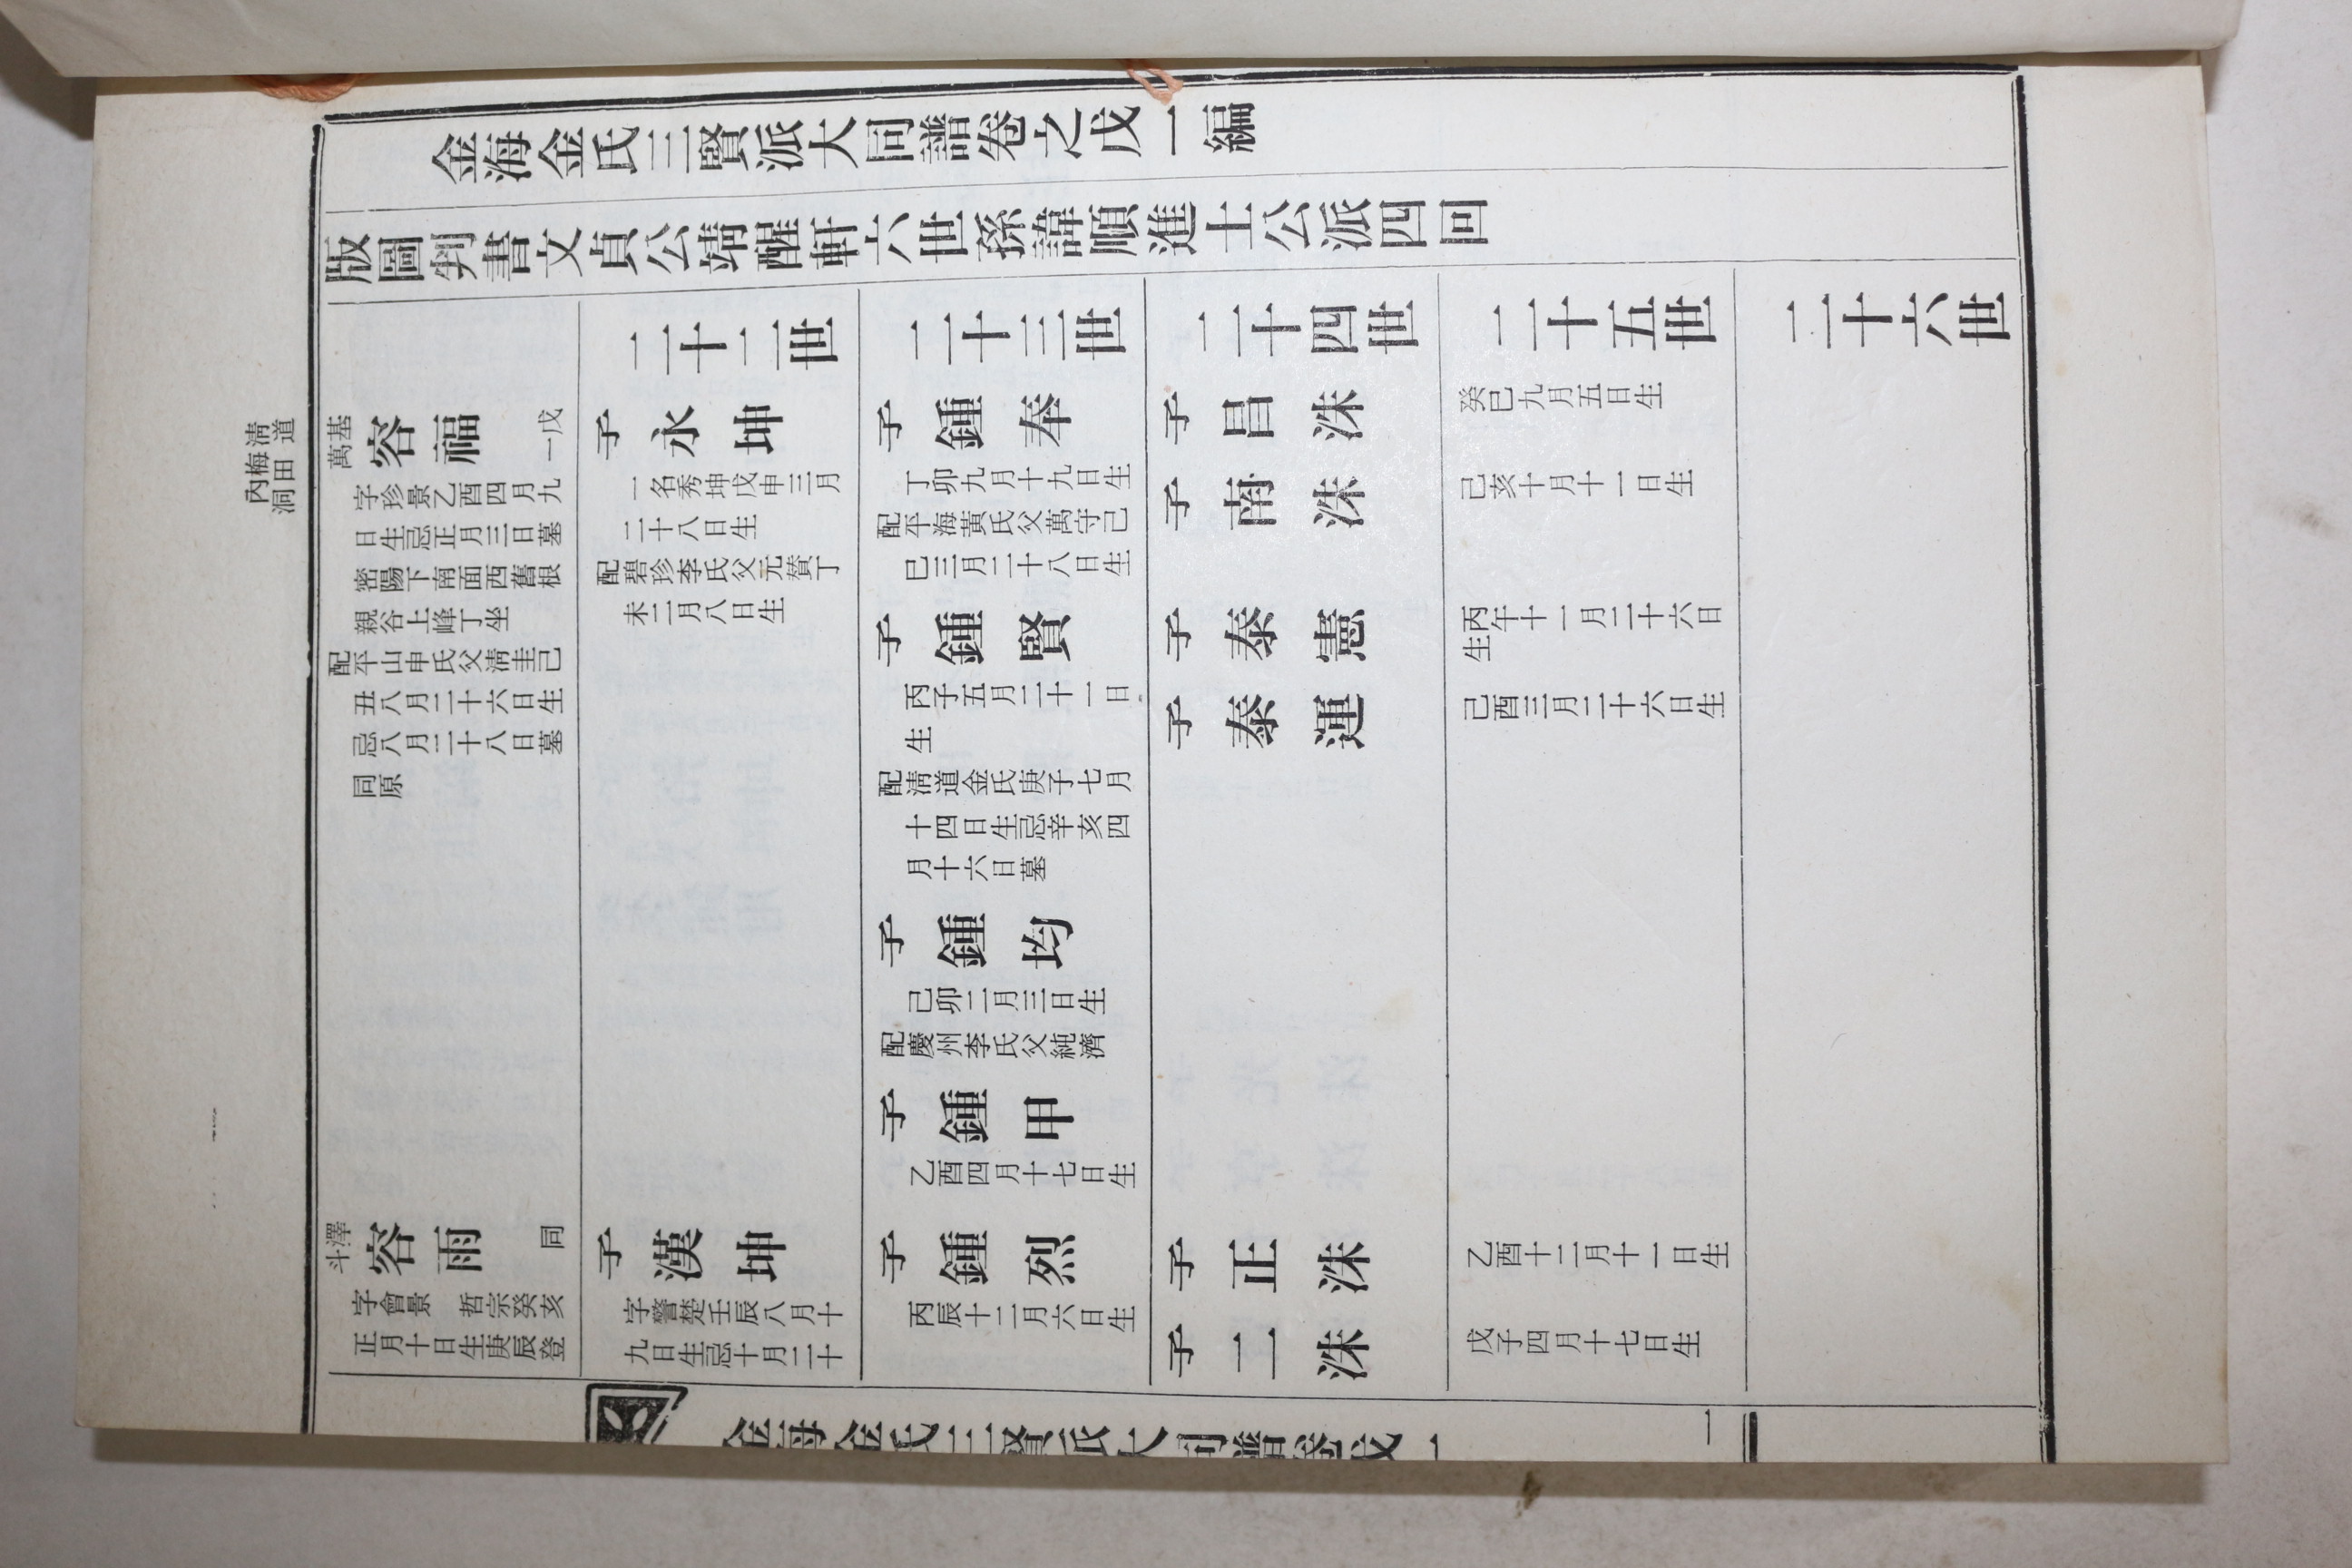 金海金氏三賢派大同譜卷之戊一編
版圖判書文貞公靖醒軒六世孫諱順進士公派四回
淸道
梅田
內洞
萬基
容福
一戊
字珍景乙酉四月九
日生忌正月三日墓
密陽下南面西舊根
親谷上峰丁坐
配平山申氏父淸圭己
丑八月二十六日生
忌八月二十八日墓
同原
斗澤
容雨
同
字會景 哲宗癸亥
正月十日生庚辰登
二十二世
子永坤
一名秀坤戊申三月
二十八日生
配碧珍李氏父元贊丁
未二月八日生
子漢坤
字警楚壬辰八月十
九日生忌十月二十
二十三世
子鍾奉
丁卯九月十九日生
配平海黃氏父萬守己
巳三月二十八日生
子鍾賢
丙子五月二十一日
生
配淸道金氏庚子七月
十四日生忌辛亥四
月十六日墓
子鍾均
己卯二月三日生
配慶州李氏父純濟
子鍾甲
乙酉四月十七日生
子鍾烈
丙辰十二月六日生
二十四世
子昌洙
子南洙
子泰憲
子泰運
子正洙
子二洙
二十五世
癸巳九月五日生
己亥十月十一日生
丙午十一月二十六日
生
己酉三月二十六日生
乙酉十二月十一日生
戊子四月十七日生
二十六世
金海金氏三賢派大同譜卷戊一
一